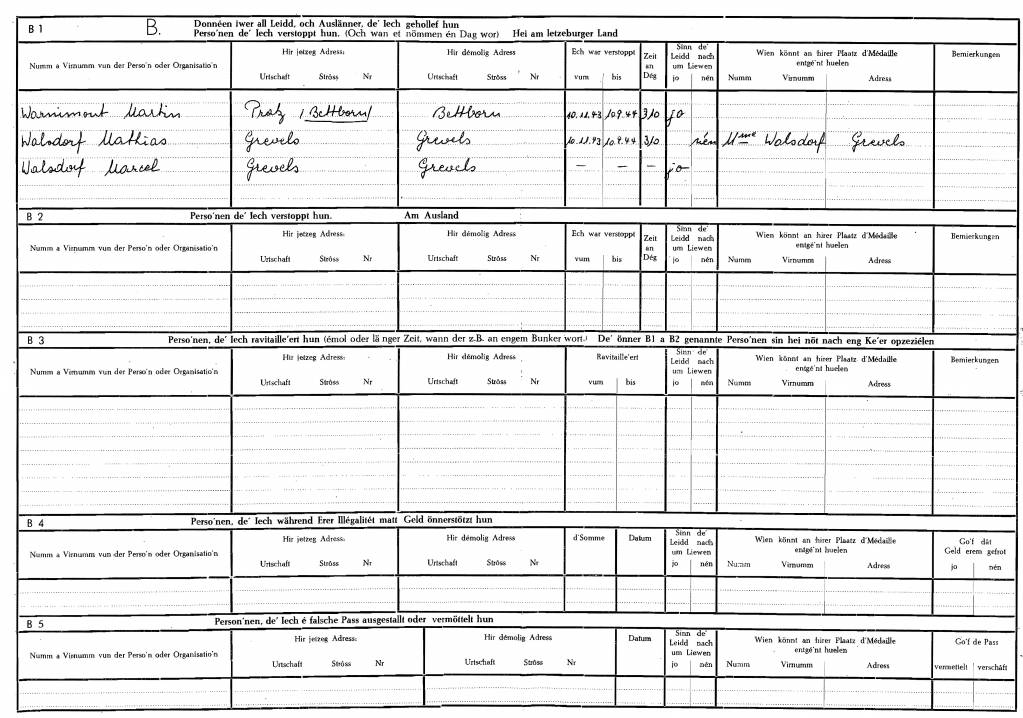 B 1 B. Donnéen iwer all Leidd, och Auslänner, de' Iech gehollef hun
Perso'nen de' Iech verstoppt hun. (Och wan et nömmen én Dag wor) Hei am letzeburger Land
Numm a Virnumm vun der Perso'n oder Organisatio'n
Hir jetzeg Adress:
Urtschaft Ströss Nr
Hir démolig Adress
Urtschaft Ströss Nr
Ech war verstoppt
vum bis
Zeit
an
Dég
Sinn de'
Leidd nach
um Liewen
jo nén
Wien könnt an hirer Plaatz d'Médaille
entgé'nt huelen
Numm Virnumm Adress
Bemierkungen
Warnimont Martin Pratz (Bettborn) Bettborn 10.11.43 10.9.44 310 jo
Walsdorf Mathias Grevels Grevels 10.11.43 10.9.44 310 nén Mme Walsdorf Grevels
Walsdorf Marcel Grevels Grevels – – – jo
B 2 Perso'nen de' Iech verstoppt hun. Am Ausland
Numm a Virnumm vun der Perso'n oder Organisatio'n
Hir jetzeg Adress:
Urtschaft Ströss Nr
Hir démolig Adress
Urtschaft Ströss Nr
Ech war verstoppt
vum bis
Zeit
an
Dég
Sinn de'
Leidd nach
um Liewen
jo nén
Wien könnt an hirer Plaatz d'Médaille
entgé'nt huelen
Numm Virnumm Adress
Bemierkungen
B 3 Perso'nen, de' Iech ravitaille'ert hun (émol oder länger Zeit, wann der z.B. an engem Bunker wort.) De' önner B1 a B2 genannte Perso'nen sin hei nöt nach eng Ke'er opzeziélen
Numm a Virnumm vun der Perso'n oder Organisatio'n
Hir jetzeg Adress:
Urtschaft Ströss Nr
Hir démolig Adress
Urtschaft Ströss Nr
Ravitaille'ert
vum bis
Sinn de'
Leidd nach
um Liewen
jo nén
Wien könnt an hirer Plaatz d'Médaille
entgé'nt huelen
Numm Virnumm Adress
Bemierkungen
B 4 Perso'nen, de' Iech während Erer Illégalitét matt Geld önnerstötzt hun
Numm a Virnumm vun der Perso'n oder Organisatio'n
Hir jetzeg Adress:
Urtschaft Ströss Nr
Hir démolig Adress
Urtschaft Ströss Nr
d'Somme
Datum
Sinn de'
Leidd nach
um Liewen
jo nén
Wien könnt an hirer Plaatz d'Médaille
entgé'nt huelen
Numm Virnumm Adress
Go'f dât
Geld erem gefrot
jo nén
B 5 Perso'nen, de' Iech é falsche Pass ausgestallt oder vermöttelt hun
Numm a Virnumm vun der Perso'n oder Organisatio'n
Hir jetzeg Adress:
Urtschaft Ströss Nr
Hir démolig Adress
Urtschaft Ströss Nr
Datum
Sinn de'
Leidd nach
um Liewen
jo nén
Wien könnt an hirer Plaatz d'Médaille
entgé'nt huelen
Numm Virnumm Adress
Go'f de Pass
vermettelt verschäft